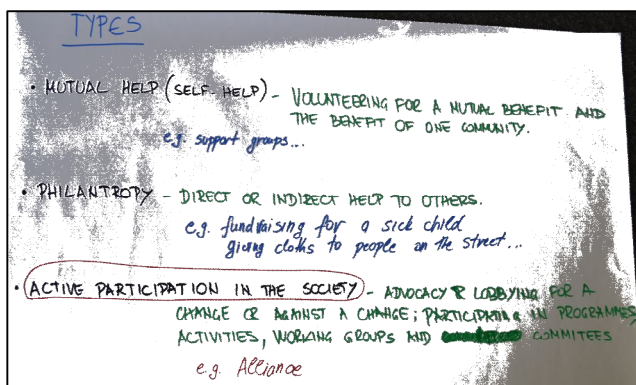 TYPES
• MUTUAL HELP (SELF-HELP) - VOLUNTEERING FOR A MUTUAL BENEFIT AND
THE BENEFIT OF ONE COMMUNITY.
e.g. support groups...
• PHILANTROPY - DIRECT OR INDIRECT HELP TO OTHERS.
e.g. fundraising for a sick child
giving cloths to people on the street...
• ACTIVE PARTICIPATION IN THE SOCIETY - ADVOCACY & LOBBYING FOR A
CHANGE OR AGAINST A CHANGE; PARTICIPATING IN PROGRAMMES,
ACTIVITIES, WORKING GROUPS AND COMMITEES
e.g. Alliance